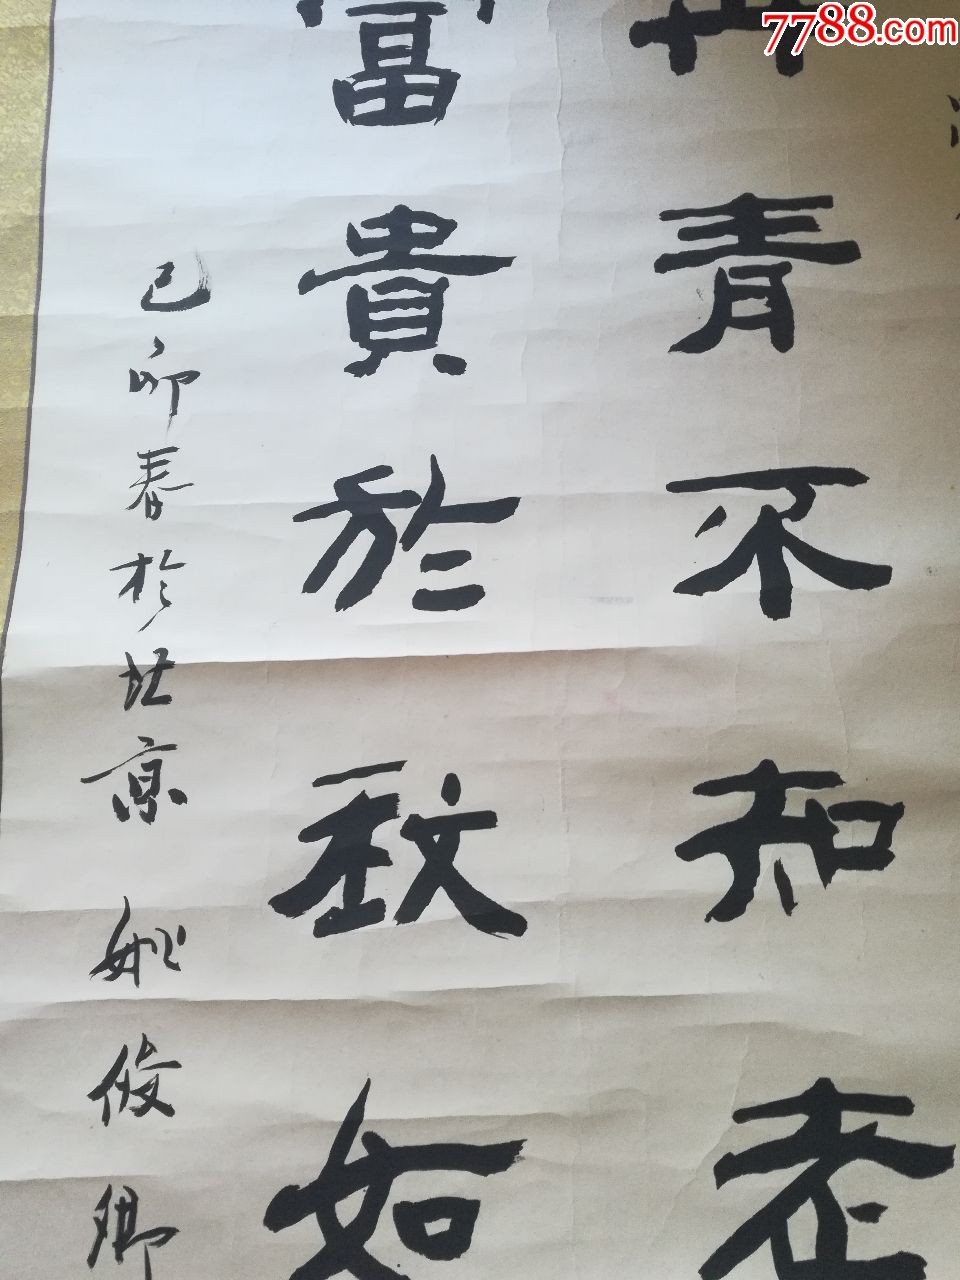 7788.com
丹青不知老
富貴於我如
己卯春於北京 姚俊卿